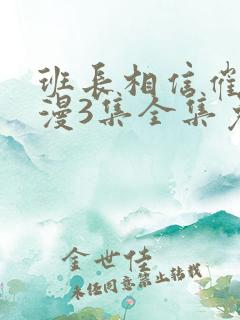 班长相信催
漫3集全集
金世佳
未经同意禁止转载